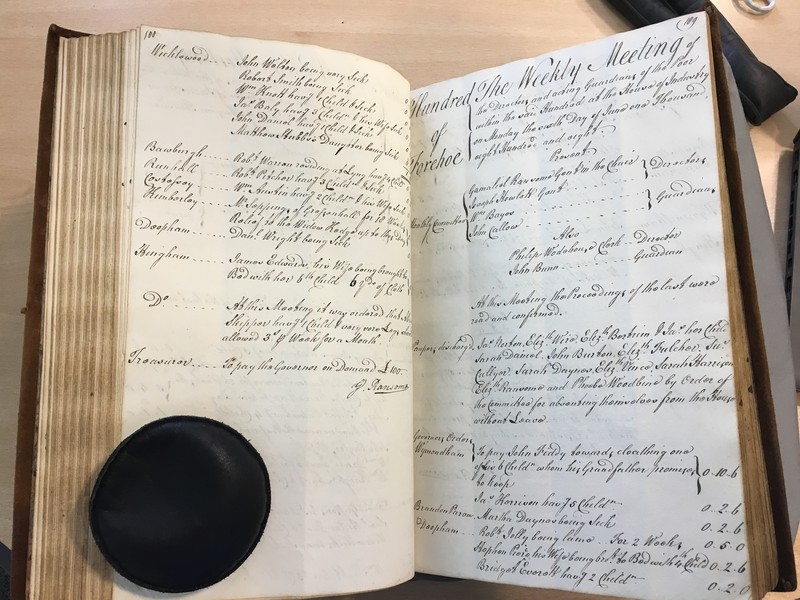 188
Wicklewood John Walton being very Sick
Robert Smith being Sick
Wm Knott havg 1 Child & Sick
Jas Baly havg 5 Childn & his Wife Sick
John Daniel havg 7 Child Sick
Mathew Stubbs's Daughter being Sick
Bawburgh Robt Warren residing at Lyng havg 4
Runhall Robt Pitcher havg 5 Childn & Sick
Costessey Wm Austin havg 2 Childn & his Wife Sick
Kimberley Mr Topping of for 10 Weeks
to the Widow Hodge up to this Day
Deopham Danl Wright being Sick
Hingham James Edwards, his Wife being brought to
Bed with her 6th Child 6 yds of Cloth
Do At this Meeting it was ordered that
Skipper havg 1 Child & very sore Legs
allowed 3s. p Week for a Month
Treasurer To pay the Governor on Demand £100
G. Ransome
189
Hundred of Forehoe
The Weekly Meeting of
the Directors and acting Guardians of the Poor
within the said Hundred at the House of Industry
on Monday the sixth Day of June one Thousand
eight Hundred and eight.
Present
Monthly Committee
Gamaliel Ransome Gent in the Chair
Joseph Howlett Gent
Directors
Wm Bayes
John Callow
Guardians
Also
Philip Wodehouse Clerk Director
John Bunn Guardian
At this Meeting the Proceedings of the last were
read and confirmed.
Paupers discharg'd Jas Norton, Elizth Wire, Elizth Bertrin & Jas her Child
Sarah Daniel, John Burton, Elizth Fulcher, Jas
Cullyer Sarah Daynes, Elizth Vince, Sarah Harrison
Elizth Ransome and Phebe Woodbine by Order of
the Committee for absenting themselves from the House
without Leave.
Governors Orders
Wymondham To pay John Fiddy towards cloathing one
of his 6 Childn whom his Grandfather promises
to keep 0-10-6
Jas Harrison havg 5 Childn 0-2-6
Brandon Parva Martha Daynes being Sick 0-2-6
Deopham Robt Jolly being lame For 2 Weeks 0-5-0
Stephen his Wife being brot to Bed with 4th Child 0-2-6
Bridget Everett havg 2 Childn 0-2-0